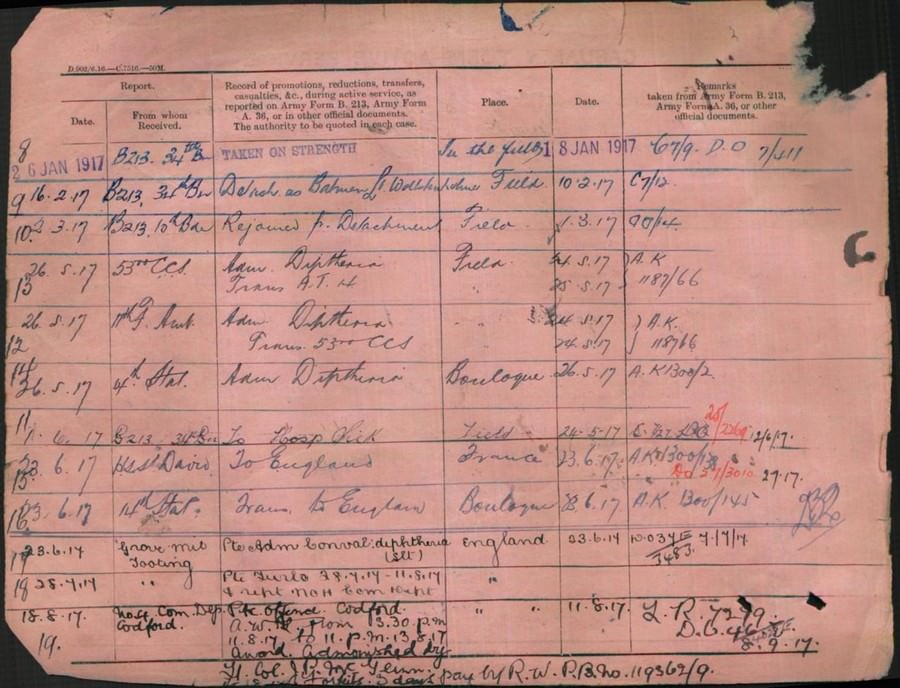 D.902/6.16.—C.7516.—50M.
Report.
Record of promotions, reductions, transfers,
casualties, &c., during active service, as
reported on Army Form B. 213, Army Form
A. 36, or in other official documents.
The authority to be quoted in each case.
Place.
Date.
Remarks
taken from Army Form B. 213,
Army Form A. 36, or other
official documents.
Date.
From whom
Received.
8
26 JAN 1917 B213. 34th Bn TAKEN ON STRENGTH In the field 18 JAN 1917 C7/9. D.O
9 16.2.17 B213, 34th Bn Detach. as Batman Field 10.2.17 C7/12
10 2.3.17 B213. Rejoined fr. Detachment Field 1.3.17
26.5.17 53rd CCS. Adm. Diptheria Field 24.5.17 A.K
13 Trans A.T. " 25.5.17 1187/66
26.5.17 11th F. Amb. Adm Diptheria 24.5.17 A.K.
12 Trans. 53rd CCS 24.5.17 1187/66
14
26.5.17 4th Stat. Adm Diptheria Boulogne 26.5.17 A.K 1300/2
11
1.6.17 B213 34 Bn To Hosp Sick Field 24-5-17 12/6/17.
23.6.17 H.S. St David To England France 23.6.17 A.K. 1300/
15 27.17.
16 23.6.17 14th Stat. Trans. to England Boulogne 23.6.17 A.K. 1300/145
17 23.6.17 Grove Mil Pte Adm Conval: diphtheria England 23.6.17 7/7/17.
Tooting (slt) 3483
18 28.7.17 " Pte Furlo 28.7.17 - 11.8.17 "
& rept No 4 Com Dept
18.8.17 No 4 Com. Dep. Pte offence. Codford. " " 11.8.17. L.R. 7299.
Codford. A.W.L. from 3.30 p.m D.O.
19. 11.8.17 to 11.p.m. 13.8.17 8.9.17.
Award. Admonished by
Lt. Col. J.
Forfeits. 3 days pay by R.W. P.B. No. 119362/9.